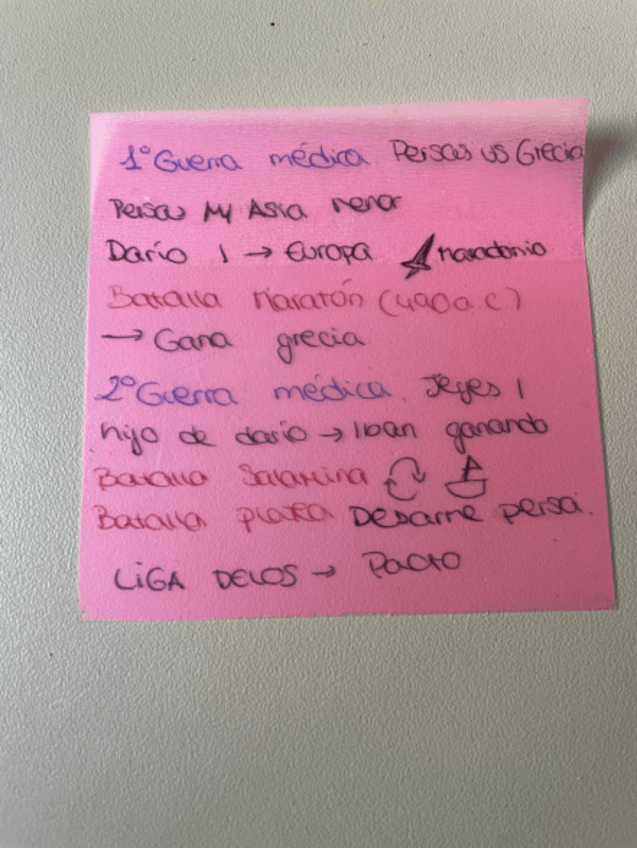 1º Guerra médica Persas vs Grecia
Persas Asia menor
Darío I → Europa Maradonio
Batalla Maratón (490a c)
→ Gana grecia
2º Guerra médica. Jerjes I
hijo de darío → Iban ganando
Batalla Salamina
Batalla platea Desarme persa.
LiGA DELOS → Pacto